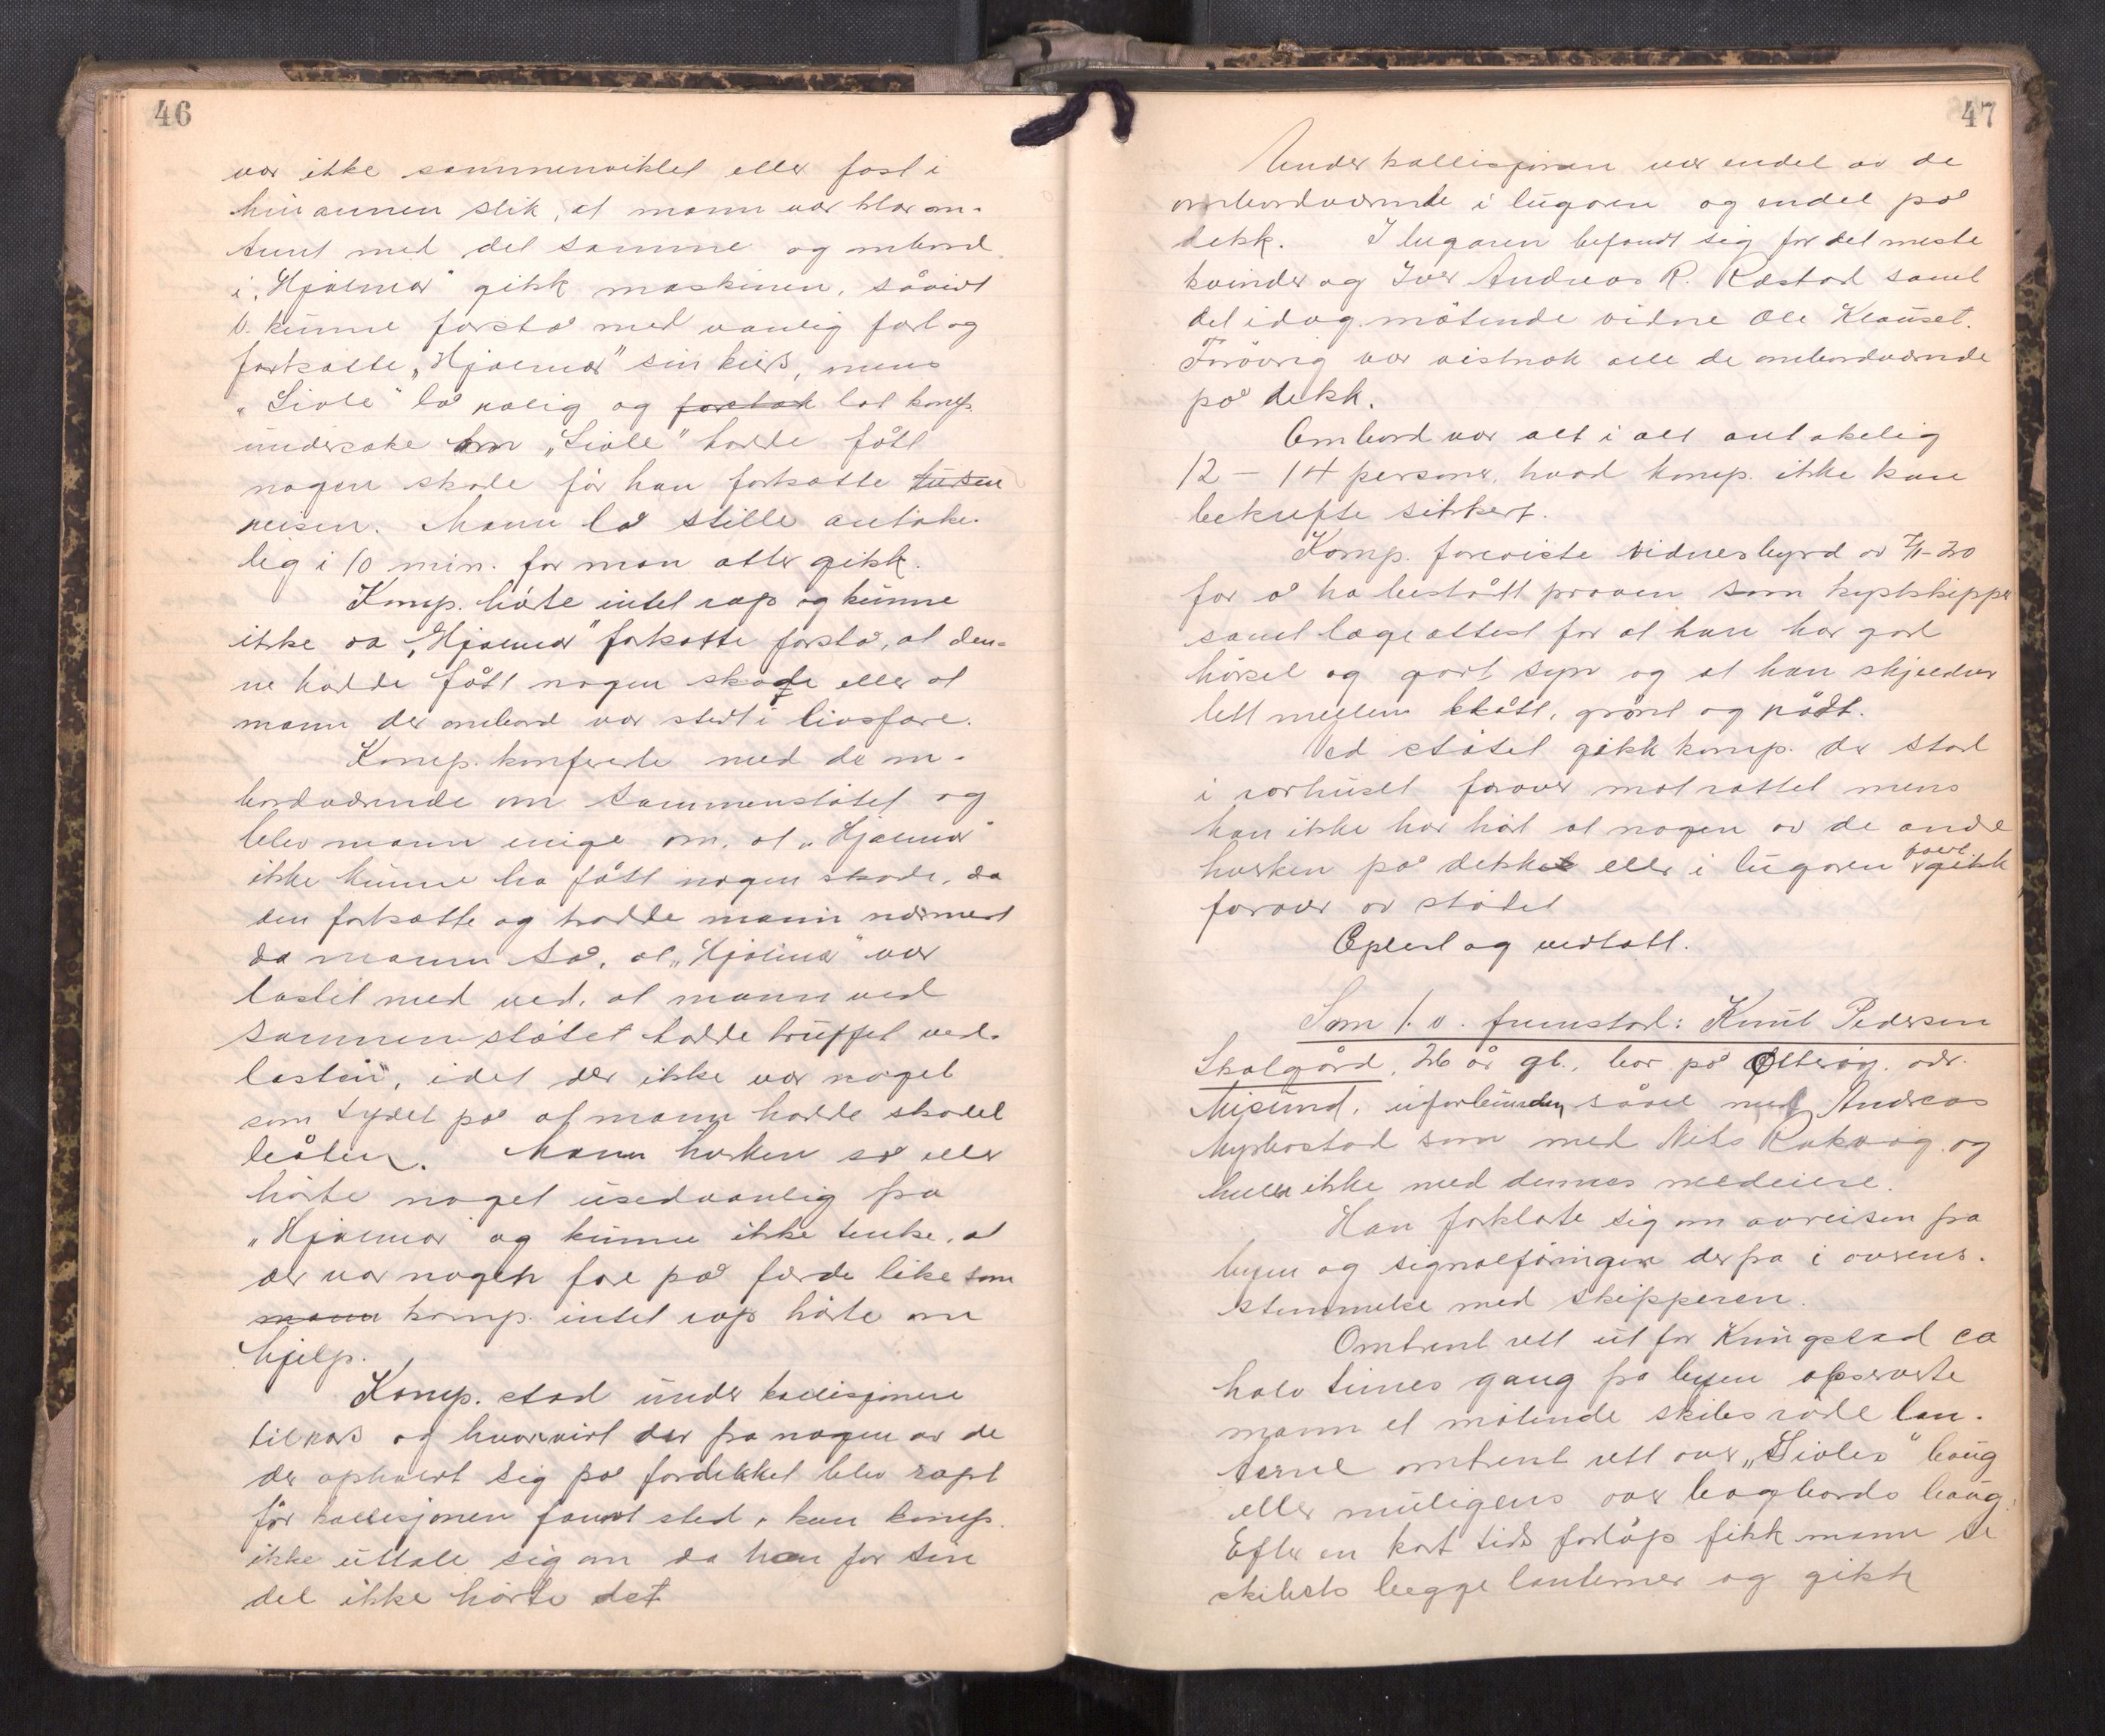 46
var ikke sammenviklet eller fast i
hinannen slik, at mann var klar om-
trent med det samme og ombord
i "Hjalmar" gikk maskinen, såvidt
v. kunne forstå med vanlig fart og
fortsatte "Hjalmar" sin kurs, mens
"Sivle" lå rolig og forstod lot komp.
undersøke om "Sivle" hadde fått
nogen skade før han fortsatte turen
reisen. Mann lå stille antake-
lig i 10 min. før man atter gikk.
Komp. hørte intet rop og kunne
ikke da "Hjalmar" fortsatte forstå, at den-
ne hadde fått nogen skade eller at
mann der ombord var stedt i livsfare.
Komp. konfererte med de om-
bordværende om sammenstøtet og
blev mann enige om, at "Hjalmar"
ikke kunne ha fått nogen skade, da
den fortsatte og trodde mann nærmest
da mann så, at "Hjalmar" var
lastet med ved, at mann ved
sammenstøtet hadde truffet ved-
lasten, idet der ikke var noget
som tydet på at mann hadde skadet
båten. Mann hverken så eller
hørte noget usedvanlig fra
"Hjalmar" og kunne ikke tenke, at
der var nogen fare på færde like som
mann komp. intet rop hørte om
hjelp.
Komp. stod under kollisjonen
tilrors og hvorvidt der fra nogen av de
der opholdt sig på fordekket blev ropt
før kollisjonen fandt sted, kan komp.
ikke uttale sig om da han for sin
del ikke hørte det
47
Under kollisjonen var endel av de
ombordværende i lugaren og endel på
dekk. I lugaren befandt sig for det meste
kvinder og Iver Andreas R. Rastad samt
det idag møtende vidne Ole Klauset.
Forøvrig var vistnok alle de ombordværende
på dekk.
Ombord var alt i alt antakelig
12 - 14 personer, hvad komp. ikke kan
bekrefte sikkert.
Komp. foreviste vidnesbyrd av 7/1-20
for å ha bestått prøven som kystskipper
samt lægeattest for at han har god
hørsel og godt syn og at han skjelner
lett mellem blått, grønt og rødt.
Ved støtet gikk komp. der stod
i rorhuset forover mot rattet mens
han ikke har hørt at nogen av de andre
hverken på dekket eller i lugaren falt gikk
forover av støtet
Oplest og vedtatt.
Som 1. v. fremstod: Knut Pedersen
Skalgård, 26 år gl., bor på Otterøy, adr.
Misund, uforbunden såvel med Andreas
Myrbostad som med Nils Rakvåg og
heller ikke med dennes medeiere.
Han forklarte sig om avreisen fra
byen og signalføringen derfra i overens-
stemmelse med skipperen.
Omtrent rett ut for Kringstad ca
halv times gang fra byen observerte
mann et møtende skibs røde lan-
terne omtrent rett over "Sivles" baug
eller muligens over bagbords baug.
Efter en kort tids forløp fikk mann se
skibets begge lanterner og gikk